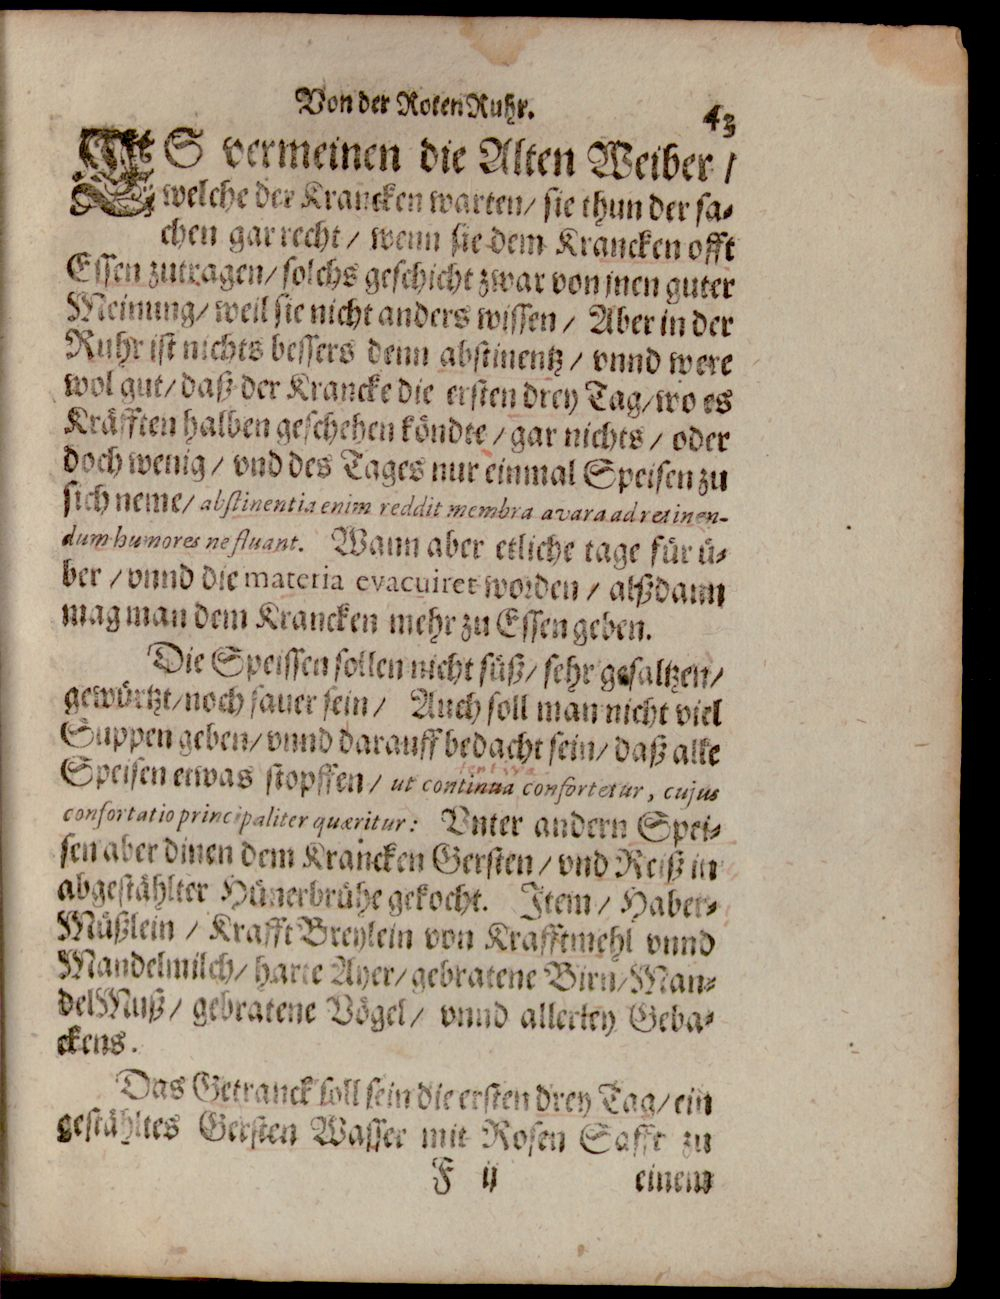 Von der Roten Ruhr.
43
ES vermeinen die Alten Weiber /
welche der Krancken warten / sie thun der sa-
chen gar recht / wenn sie dem Krancken offt
Essen zutragen / solchs geschicht zwar von jnen guter
Meinung / weil sie nicht anders wissen / Aber in der
Ruhr ist nichts bessers denn abstinentz / vnnd were
wol gut / daß der Krancke die ersten drey Tag / wo es
Kräfften halben geschehen köndte / gar nichts / oder
doch wenig / vnd des Tages nur einmal Speisen zu
sich neme / abstinentia enim reddit membra avara ad retinen-
dum humores ne fluant. Wann aber etliche tage für ü-
ber / vnnd die materia evacuiret worden / alßdann
mag man dem Krancken mehr zu Essen geben.
Die Speissen sollen nicht süß / sehr gesaltzen /
gewürtzt / noch sauer sein / Auch soll man nicht viel
Suppen geben / vnnd darauff bedacht sein / daß alle
tentiva
Speisen etwas stopffen / ut continua confortetur, cujus
confortatio principaliter quæritur: Vnter andern Spei-
sen aber dinen dem Krancken Gersten / vnd Reiß in
abgestählter Hünerbrühe gekocht. Item / Haber-
Müßlein / Krafft Breylein von Krafftmehl vnnd
Mandelmilch / harte Ayer / gebratene Birn / Man-
delMuß / gebratene Vögel / vnnd allerley Geba-
ckens.
Das Getranck soll sein die ersten drey Tag / ein
gestähltes Gersten Wasser mit Rosen Safft zu
F ij
einem